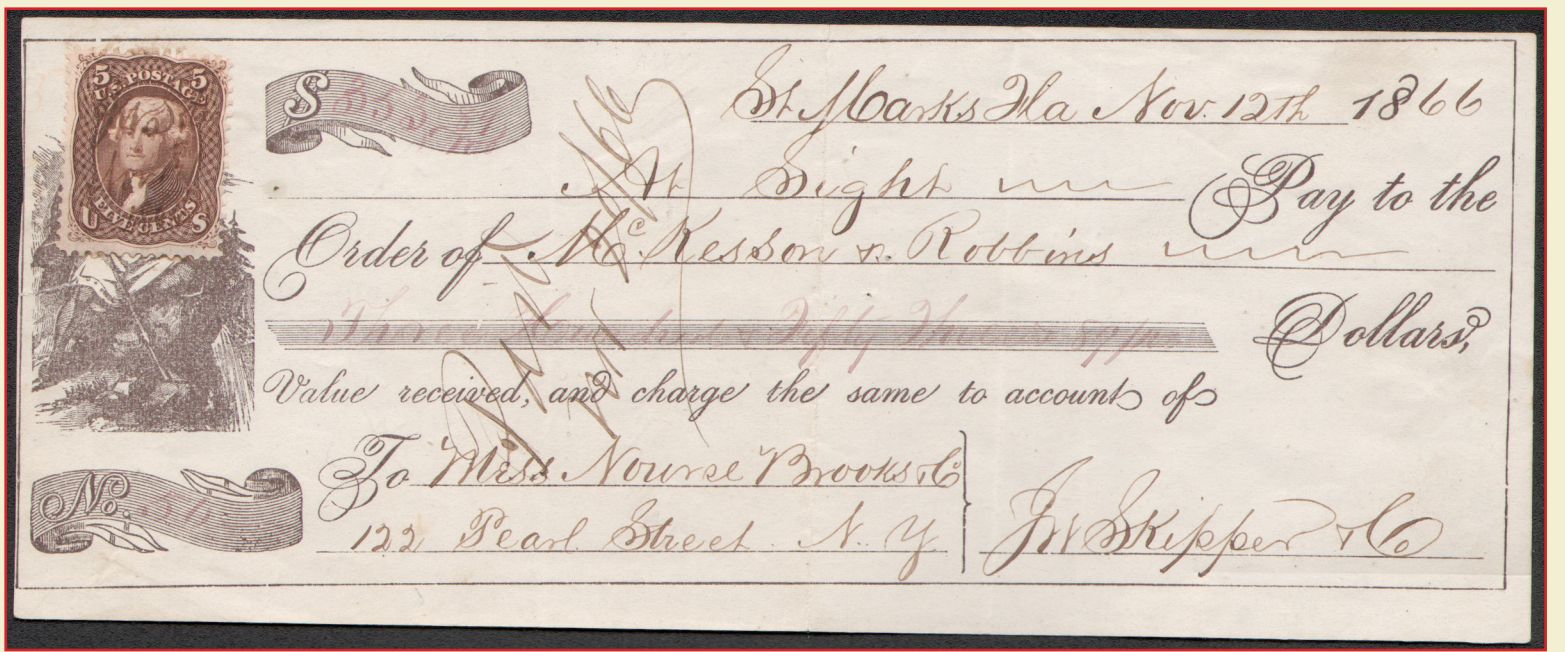 5 5
U.S. POSTAGE
FIVE CENTS
U S
$
St Marks Fla Nov. 12th 1866
At Sight Pay to the
Order of McKesson & Robbins
Three hundred & Fifty Three Dollars,
Value received, and charge the same to account of
To Mess Nourse Brooks & Co
122 Pearl Street N. Y.
JW Skipper & Co
No.